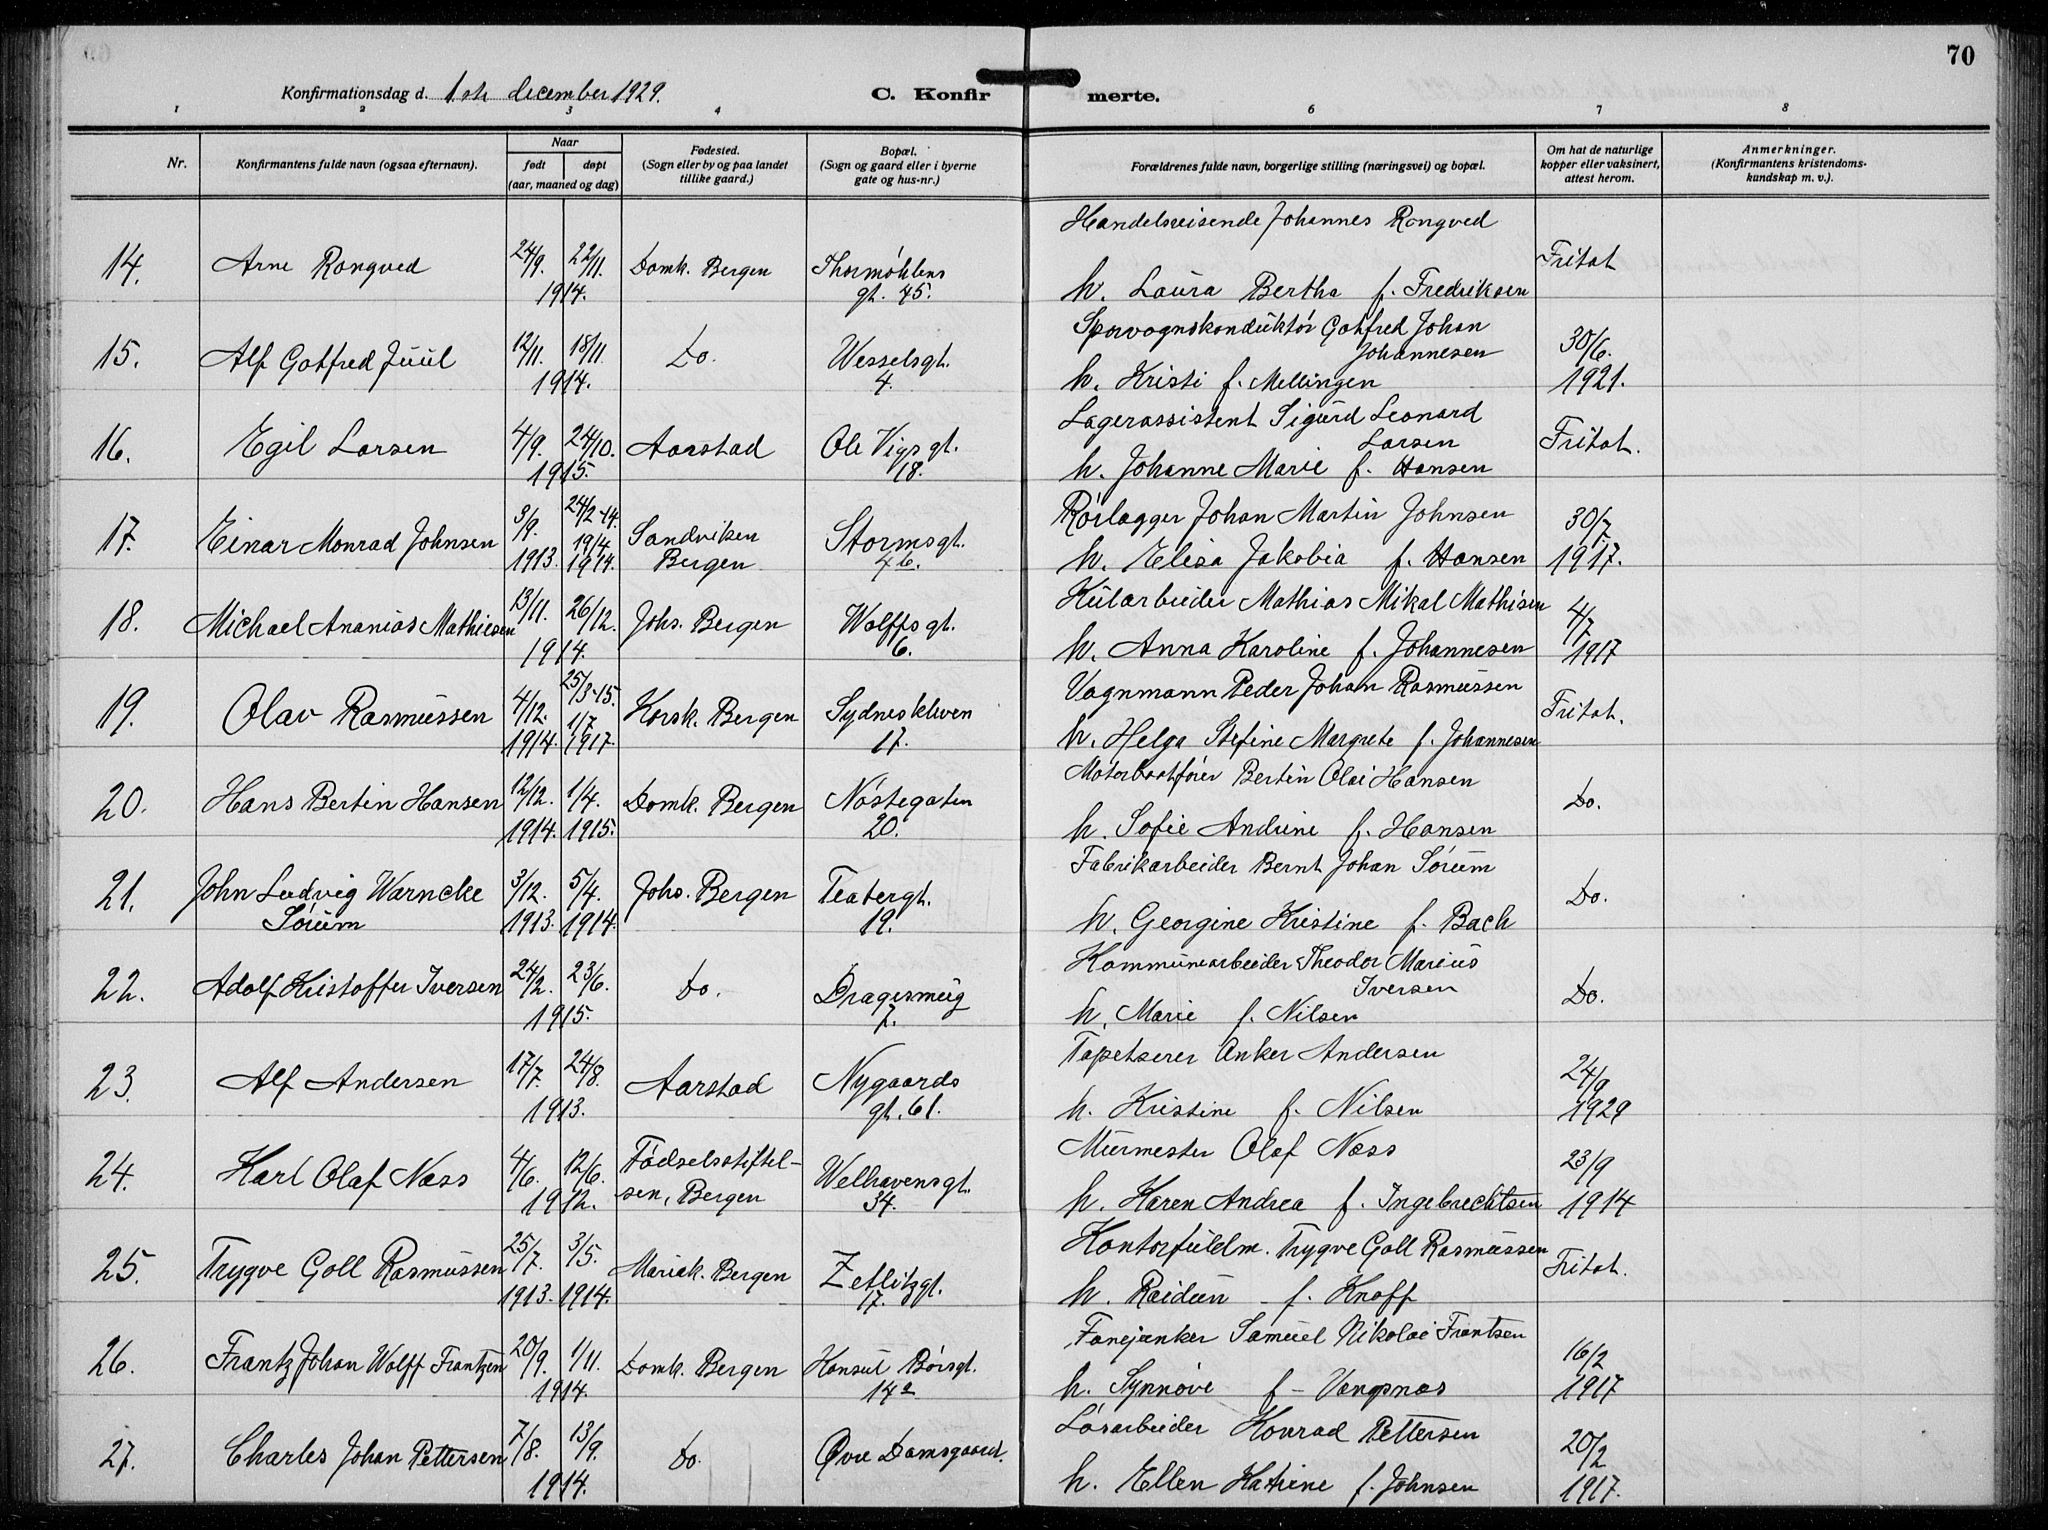 70
Konfirmationsdag d. 1ste december 1929. C. Konfirmerte.
1 2 3 4 6 7 8
Nr. Konfirmantens fulde navn (ogsaa efternavn). Naar født døpt (aar, maaned og dag) Fødested. (Sogn eller by og paa landet tillike gaard.) Bopæl. (Sogn og gaard eller i byerne gate og hus-nr.) Forældrenes fulde navn, borgerlige stilling (næringsvei) og bopæl. Om hat de naturlige kopper eller vaksinert, attest herom. Anmerkninger. (Konfirmantens kristendoms-kundskap m. v.).
14. Arne Rongved 24/9. 22/11. 1914. Domk. Bergen Thormøhlens gt. 45. Handelsreisende Johannes Rongved
h. Laura Bertha f. Fredriksen Fritat
15. Alf Gotfred Juul 12/11. 18/11. 1914. Do. Wesselsgt. 4. Sporvognskonduktør Gotfred Johan Johannesen
h. Kristi f. Mellingen 30/6. 1921.
16. Egil Larsen 4/9. 24/10. 1915. Aarstad Ole Vigs gt. 18. Lagerassistent Sigurd Leonard Larsen
h. Johanne Marie f. Hansen Fritat.
17. Einar Monrad Johnsen 3/9. 1913. 24/2-14. 19/4. 1914. Sandviken Bergen Stormsgt. 46. Rørlægger Johan Martin Johnsen
h. Elisa Jakobia f. Hansen 30/7. 1917.
18. Michael Ananias Mathiesen 13/11. 26/12. 1914. Johs. Bergen Wolffs gt. 6. Kularbeider Mathias Mikal Mathisen
h. Anna Karoline f. Johannesen 4/7 1917
19. Olav Rasmussen 4/12. 1914. 25/3-15. 1/7 1917. Korsk. Bergen Sydneskleven 17. Vognmann Peder Johan Rasmussen
h. Helga Stefine Margrete f. Johannesen Fritat.
20. Hans Bertin Hansen 12/12. 1914. 1/4. 1915. Domk. Bergen Nøstegaten 20. Motorbaatfører Bertin Olai Hansen
h. Sofie Andrine f. Hansen Do.
21. John Ludvig Warncke Sørum 3/12. 1913. 5/4. 1914. Johs. Bergen Teatergt. 19. Fabrikarbeider Bernt Johan Sørum
h. Georgine Kristine f. Bach Do.
22. Adolf Kristoffer Iversen 24/2. 23/6. 1915. Do. Dragesmug 7. Kommunearbeider Theodor Marius Iversen
h. Marie f. Nilsen Do.
23. Alf Andersen 17/7. 24/8. 1913. Aarstad Nygaards gt. 61. Tapetserer Anker Andersen
h. Kristine f. Nilsen 24/9 1929
24. Karl Olaf Næss 4/6. 12/6. 1912. Fødselsstiftelsen, Bergen Welhavensgt. 34. Murmester Olaf Næss
h. Karen Andrea f. Ingebrechtsen 23/9 1914
25. Trygve Goll Rasmussen 25/7. 1913. 3/5. 1914. Mariak. Bergen Zetlitzgt. 17. Kontorfuldm. Trygve Goll Rasmussen
h. Reidun f. Knoff Fritat.
26. Frantz Johan Wolff Frantzen 20/9. 1/11. 1914. Domk. Bergen Konsul Børsgt. 14a Fanejunker Samuel Nikolai Frantsen
h. Synnøve f. Vangsnes 16/2 1917
27. Charles Johan Pettersen 7/8. 13/9. 1914. Do. Øvre Damsgaard. Løsarbeider Konrad Pettersen
h. Ellen Katrine f. Johnsen 20/2 1917.